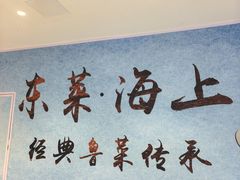 东菜·海上
经典鲁菜传承